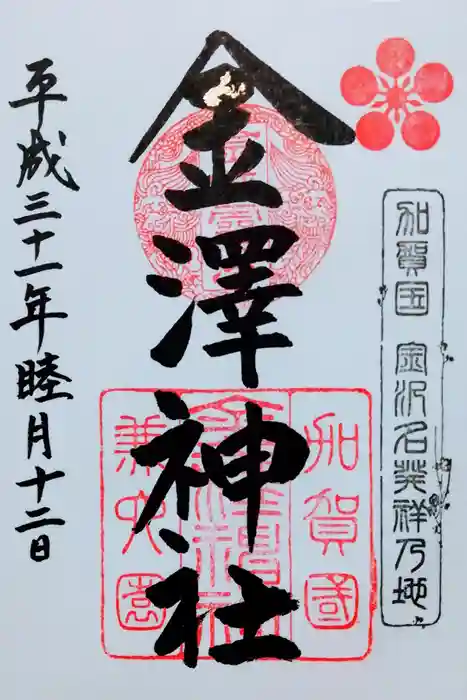 加賀国 金沢名発祥乃地
金澤神社
加賀國
金澤神社
兼六園
平成三十一年睦月十二日